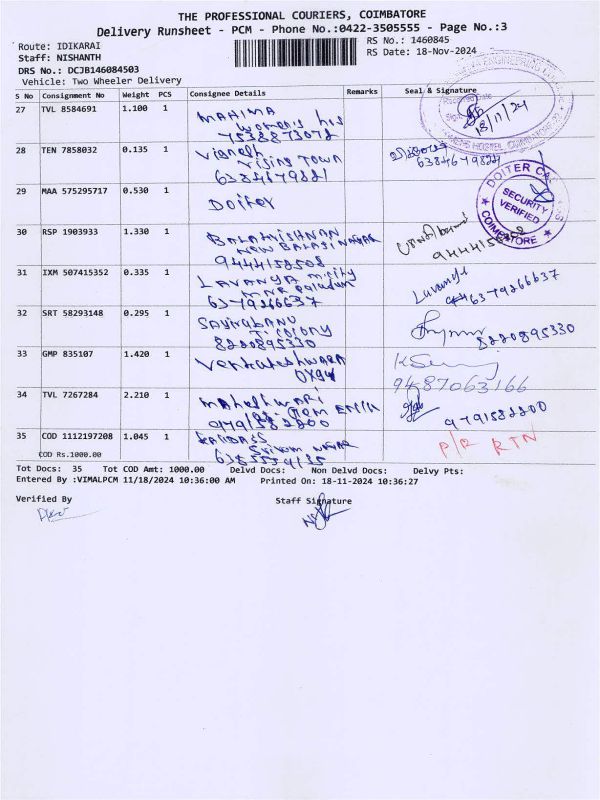 THE PROFESSIONAL COURIERS, COIMBATORE
Delivery Runsheet - PCM - Phone No.:0422-3505555 - Page No.:3
Route: IDIKARAI
RS No.: 1460845
Staff: NISHANTH
RS Date: 18-Nov-2024
DRS No.: DCJB146084503
Vehicle: Two Wheeler Delivery
S No Consignment No Weight PCS Consignee Details Remarks Seal & Signature
27 TVL 8584691 1.100 1 MAHIMA
women's hos
7538873072
18/11/24
28 TEN 7858032 0.135 1 Vignesh
Rising Town
6384679821
6384679821
29 MAA 575295717 0.530 1 Doiter
DOITER
SECURITY
VERIFIED
COIMBATORE
30 RSP 1903933 1.330 1 BALAKRISHNAN
NEW BALAJI NAGAR
9444152508
31 IXM 507415352 0.335 1 LAVANYA M.City
6379266637
Lavanya
6379266637
32 SRT 58293148 0.295 1 SAYIRABANU
T. Colony
8220895330
8220895330
33 GMP 835107 1.420 1 Venkateshwara
9487063166
34 TVL 7267284 2.210 1 Maheshwari
9791582200
9791582200
35 COD 1112197208 1.045 1
COD Rs.1000.00
P/R RTN
Tot Docs: 35 Tot COD Amt: 1000.00 Delvd Docs: Non Delvd Docs: Delvy Pts:
Entered By :VIMALPCM 11/18/2024 10:36:00 AM Printed On: 18-11-2024 10:36:27
Verified By Staff Signature